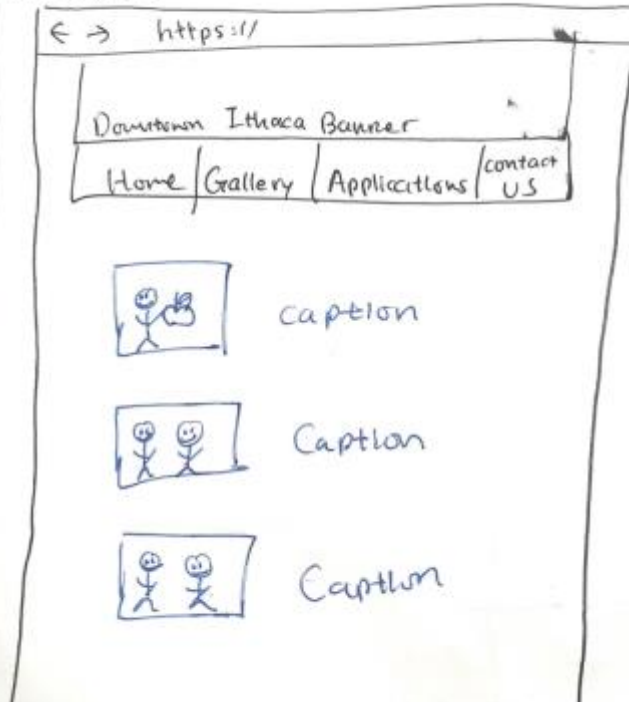 ← → https://
Downtown Ithaca Banner
Home Gallery Applications contact
US
caption
Caption
Caption